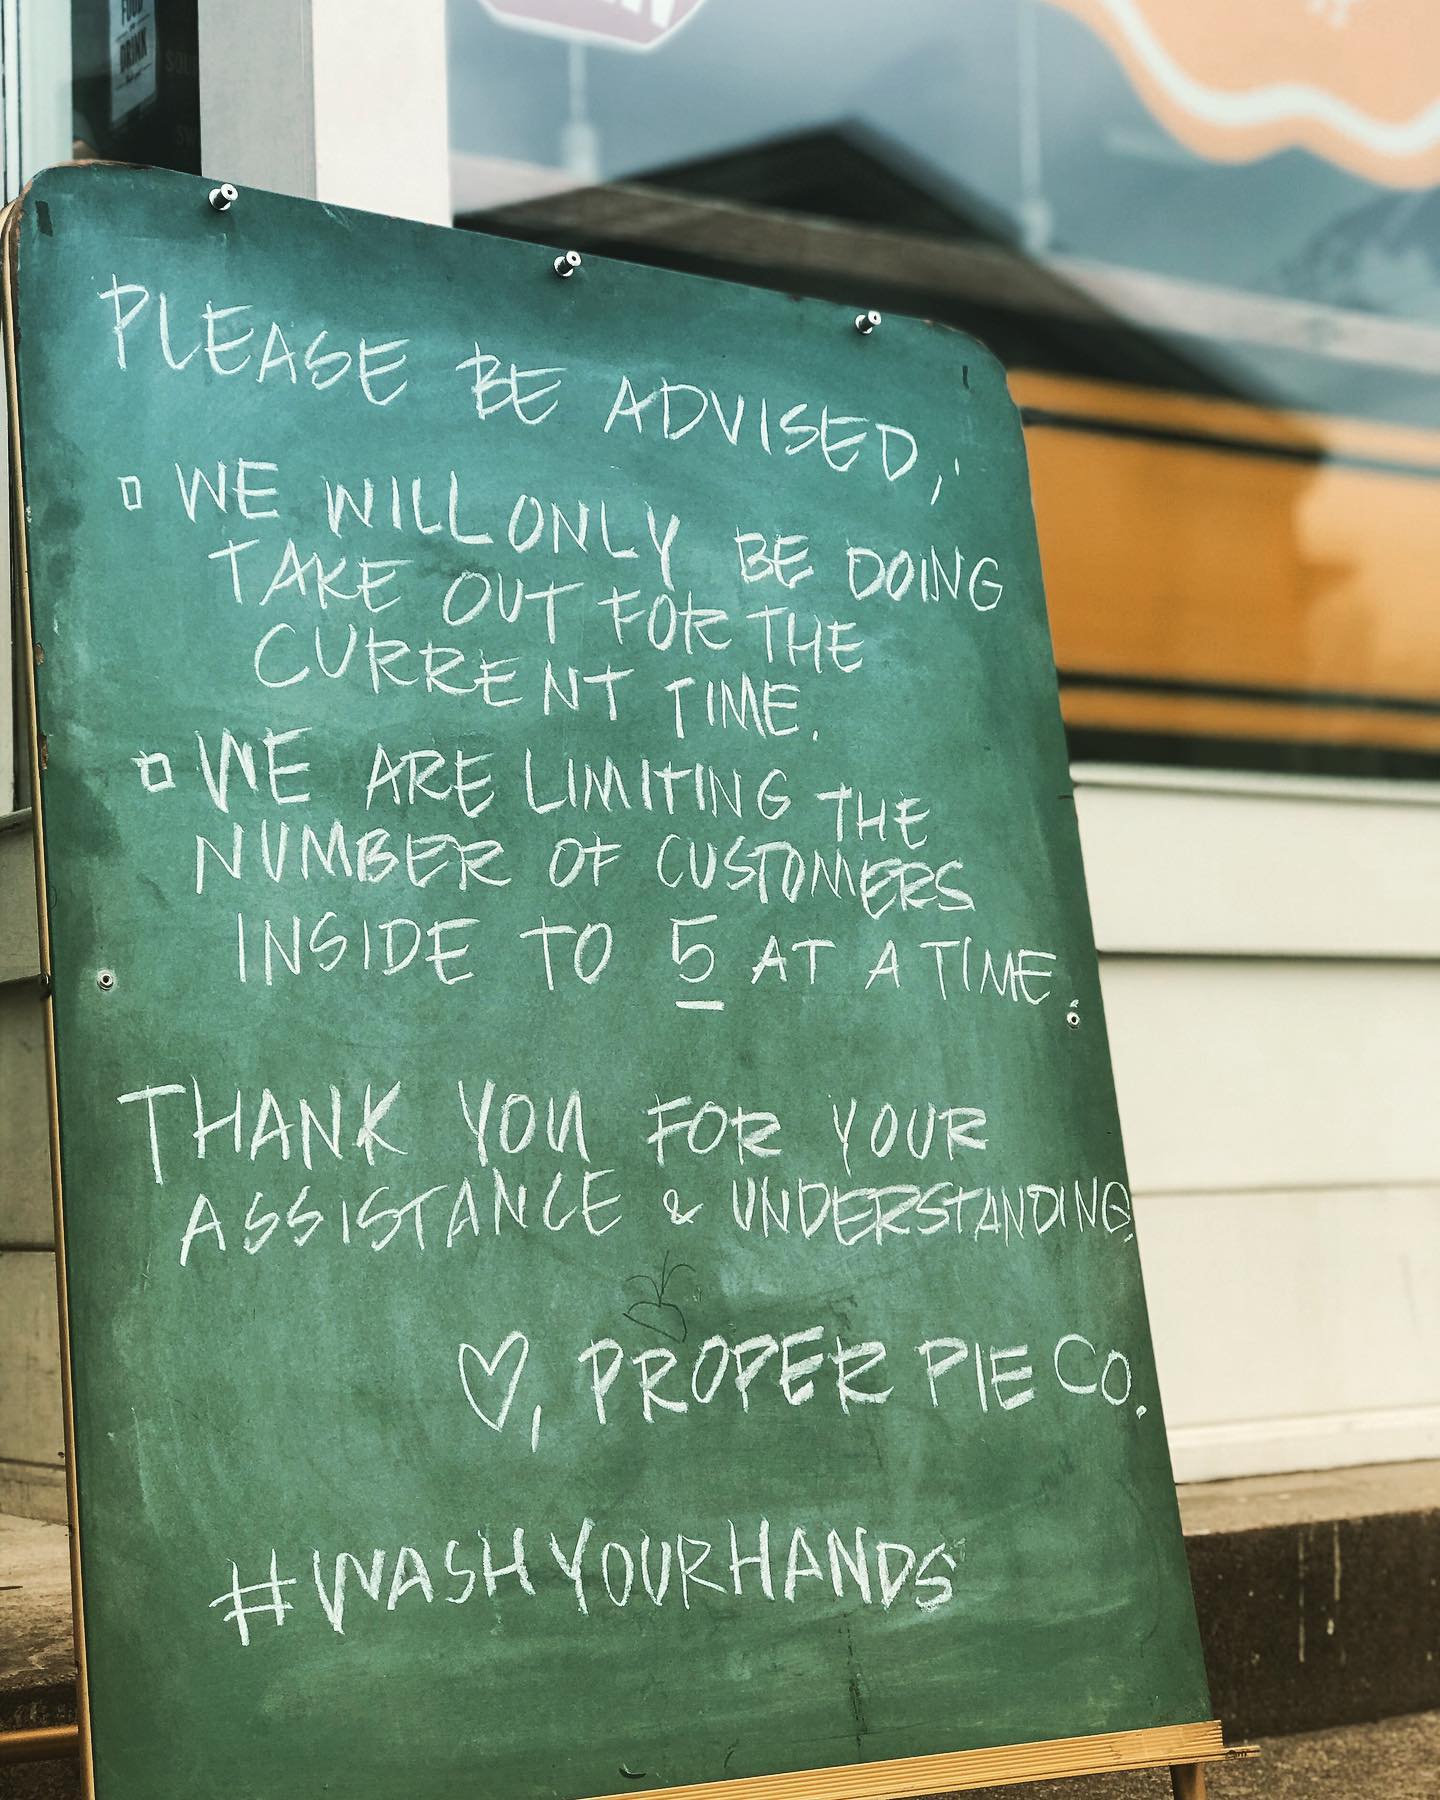 FOOD
DRINK
PLEASE BE ADVISED,
▫ WE WILL ONLY BE DOING
TAKE OUT FOR THE
CURRENT TIME.
▫ WE ARE LIMITING THE
NUMBER OF CUSTOMERS
INSIDE TO 5 AT A TIME.
THANK YOU FOR YOUR
ASSISTANCE & UNDERSTANDING.
♡, PROPER PIE CO.
#WASHYOURHANDS